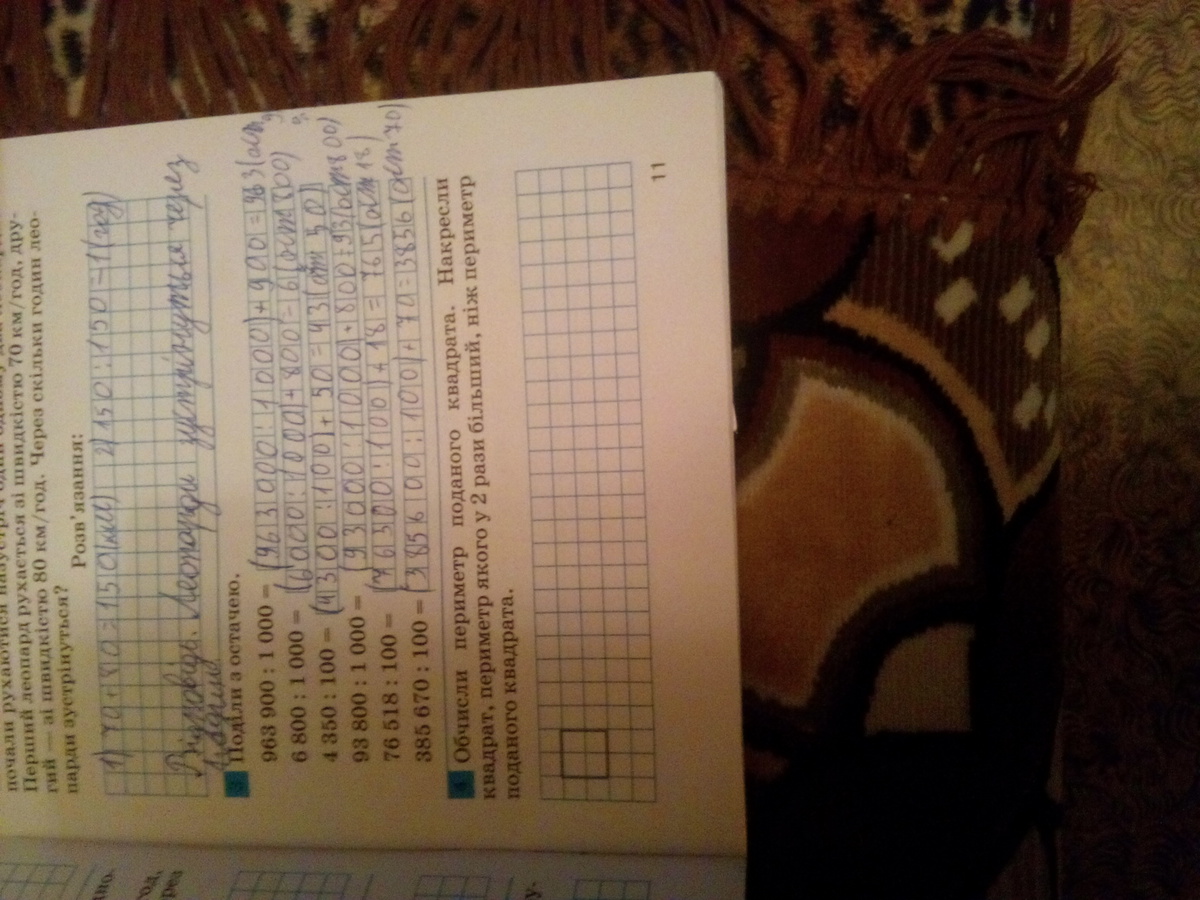 почали рухатися назустріч один одному два
Перший леопард рухається зі швидкістю 70 км/год, дру-
гий — зі швидкістю 80 км/год. Через скільки годин лео-
парди зустрінуться?
Розв'язання:
1) 70+80=150(км) 2) 150:150=1(год)
Відповідь. Леопарди зустрінуться через
1 годину
Поділи з остачею.
963 900 : 1 000 = (963000:1000)+900=963(ост
6 800 : 1 000 = (6000:1000)+800=6(ост800)
4 350 : 100 = (4300:100)+50=43(ост50)
93 800 : 1 000 = (93000:1000)+800=93(ост800)
76 518 : 100 = (76500:100)+18=765(ост18)
385 670 : 100 = (385600:100)+70=3856(ост70)
4 Обчисли периметр поданого квадрата. Накресли
квадрат, периметр якого у 2 рази більший, ніж периметр
поданого квадрата.
11
но.
год,
рез
у.